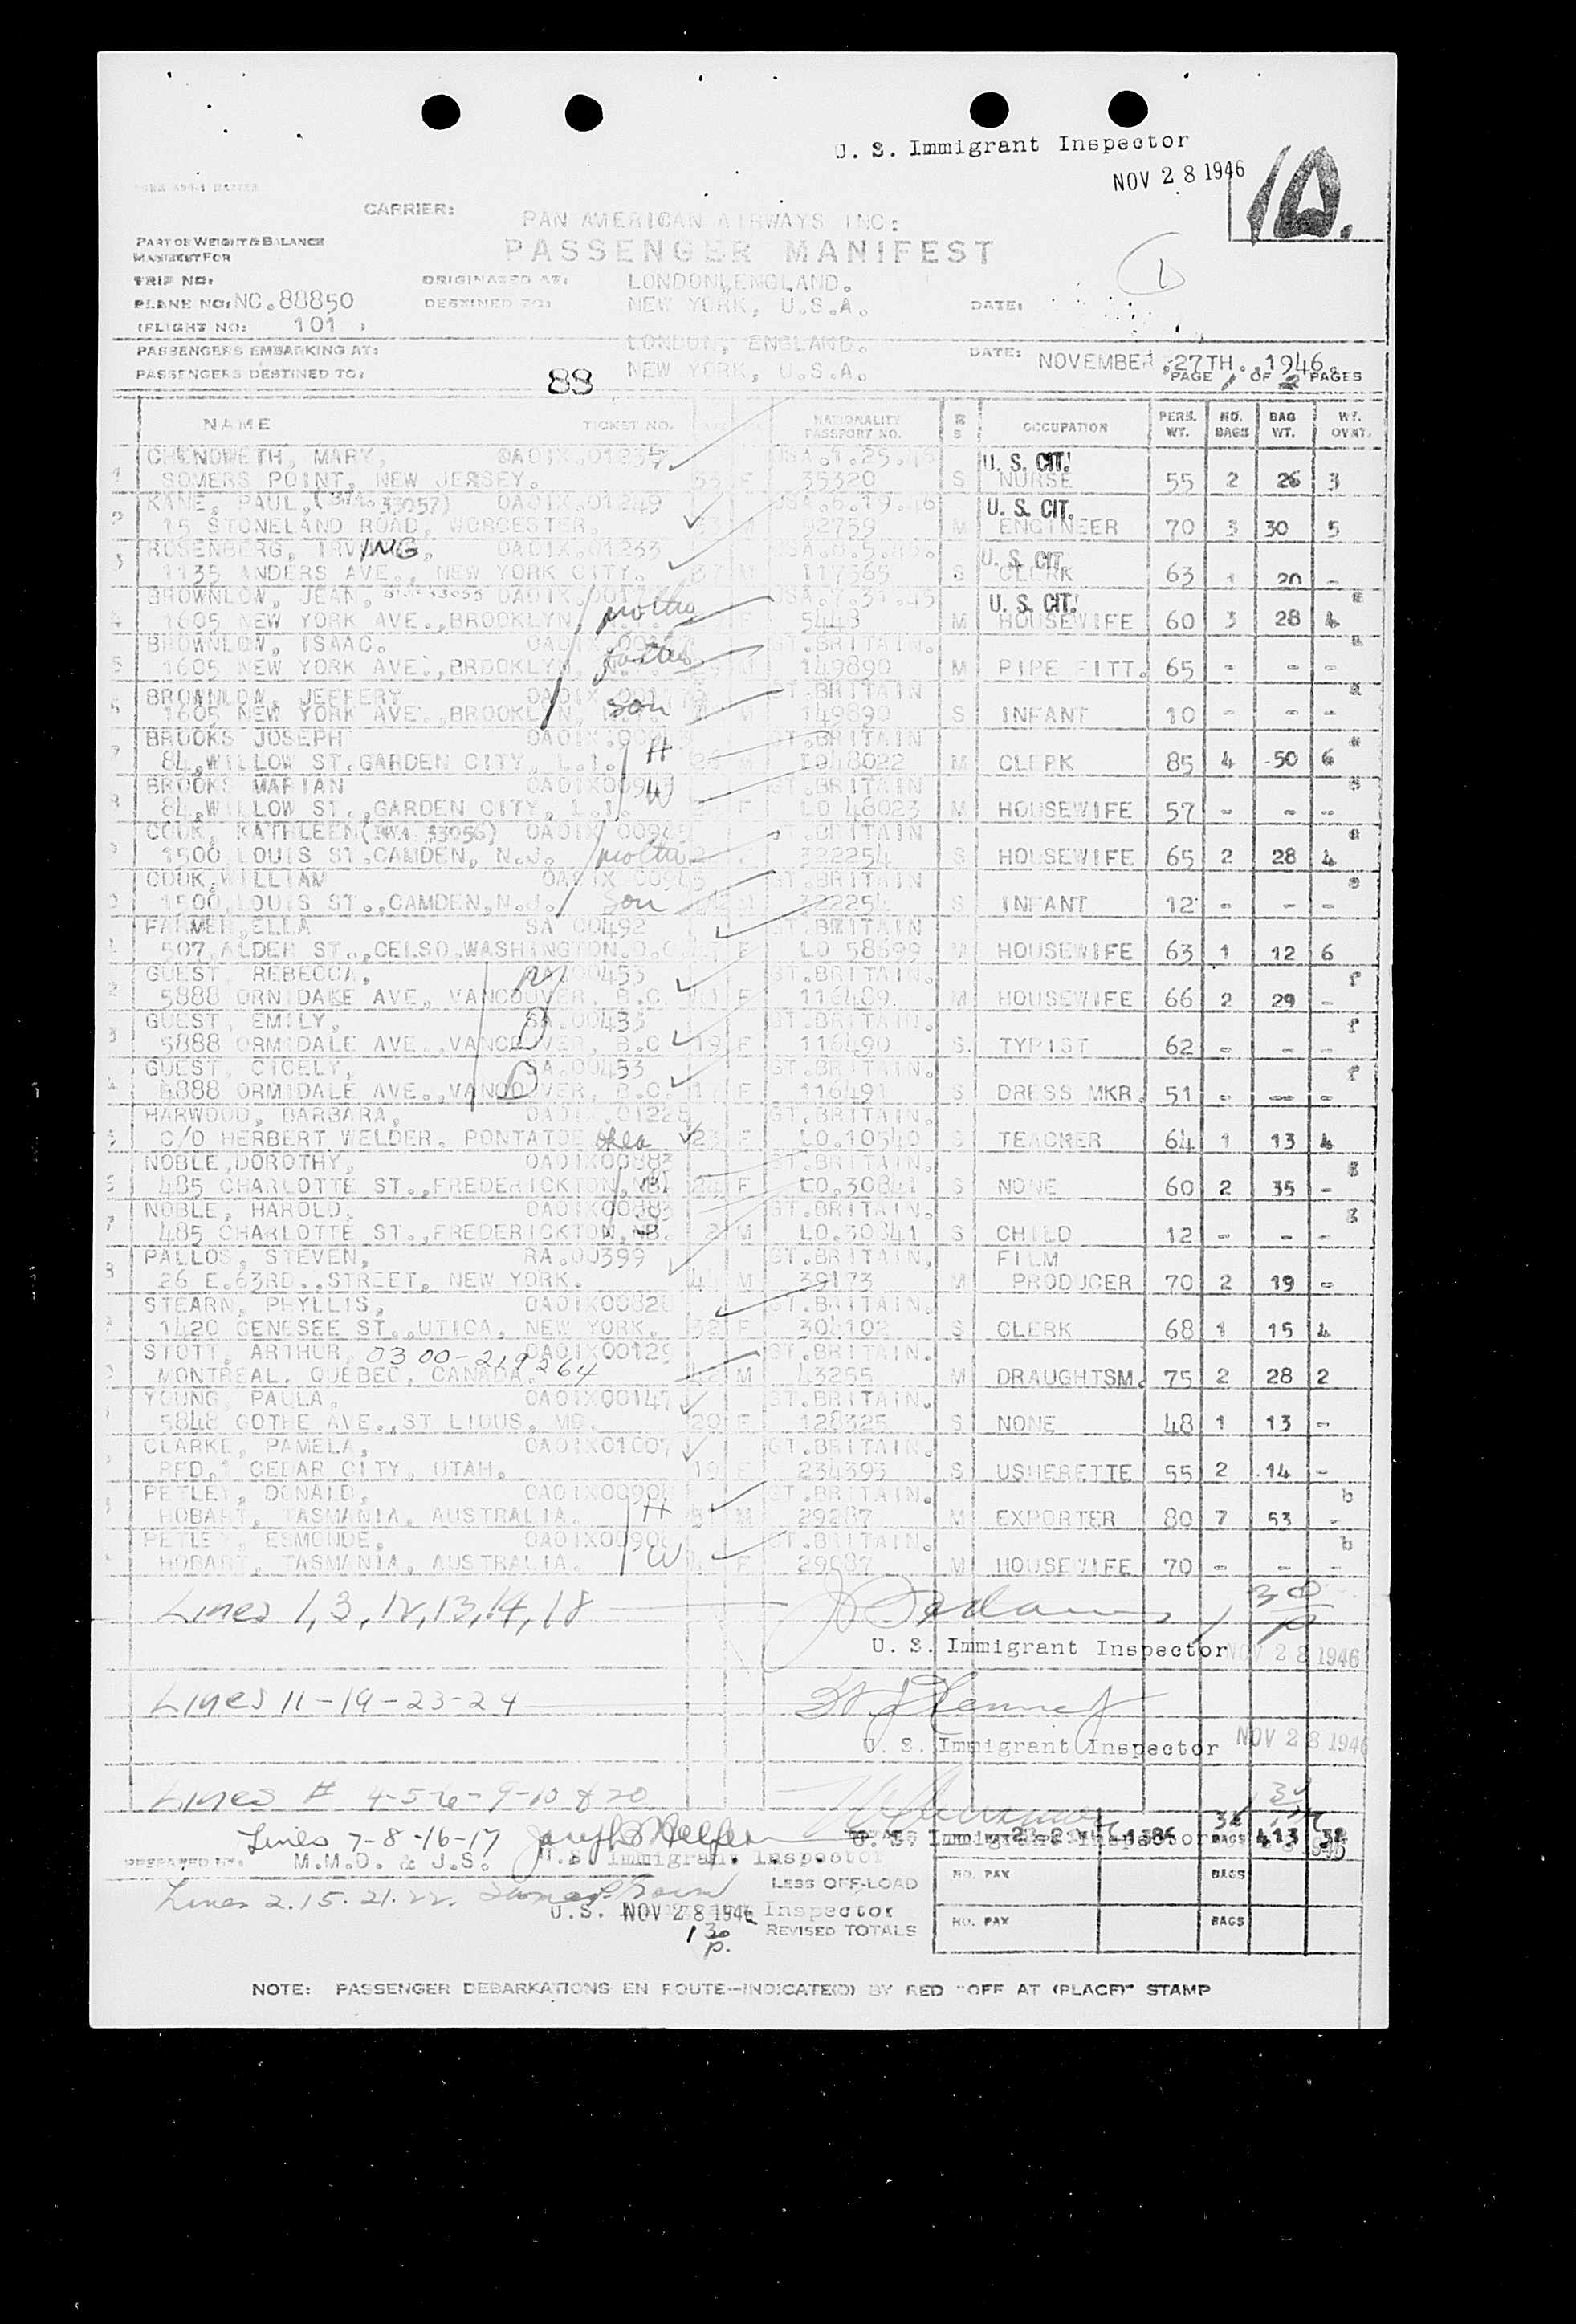 U. S. Immigrant Inspector
NOV 28 1946
10.
CARRIER: PAN AMERICAN AIRWAYS INC:
PART OF WEIGHT & BALANCE
MANIFEST FOR
PASSENGER MANIFEST
TRIP NO: ORIGINATED AT: LONDON, ENGLAND.
PLANE NO: NC.88850 DESTINED TO: NEW YORK, U.S.A. DATE:
(FLIGHT NO: 101 )
PASSENGERS EMBARKING AT: LONDON, ENGLAND. DATE: NOVEMBER, 27TH., 1946.
PASSENGERS DESTINED TO: 88 NEW YORK, U.S.A. PAGE 1 OF 2 PAGES
NAME TICKET NO. NATIONALITY PASSPORT NO. OCCUPATION PERS. WT. NO. BAGS BAG WT. WT. OVWT.
MARY, OAOIX.01234 U. S. CIT.
SOMERS POINT, NEW JERSEY. 35320 S NURSE 55 2 26 3
KANE, PAUL, OAOIX.01249 USA.6.19.46 U. S. CIT.
15 STONELAND ROAD, WORCESTER. 92759 M ENGINEER 70 3 30 5
ROSENBERG, IRVING, OAOIX.01233 U. S. CIT.
1135 ANDERS AVE., NEW YORK CITY. M S CLERK 63 1 20 -
BROWNLOW, JEAN, U. S. CIT.
1605 NEW YORK AVE., BROOKLYN, F M HOUSEWIFE 60 3 28 4
BROWNLOW, ISAAC. GT.BRITAIN.
1605 NEW YORK AVE., BROOKLYN, M 149890 M PIPE FITT. 65 - - -
BROWNLOW, JEFFERY GT.BRITAIN
1605 NEW YORK AVE., BROOKLYN, son 149890 S INFANT 10 - - -
BROOKS JOSEPH GT.BRITAIN
84, WILLOW ST. GARDEN CITY, L.I. H LO48022 M CLERK 85 4 50 6
BROOKS MARIAN GT.BRITAIN
84, WILLOW ST., GARDEN CITY, L.I. W F LO 48023 M HOUSEWIFE 57 - - -
COOK, KATHLEEN OAOIX 00945 GT.BRITAIN
1500 LOUIS ST. CAMDEN, N.J. 322254 S HOUSEWIFE 65 2 28 4
COOK, WILLIAM OAOIX 00945 GT.BRITAIN
1500, LOUIS ST., CAMDEN, N.J. son M S INFANT 12 - - -
FARMER, ELLA SA 00492 GT.BRITAIN
507 ALDER ST., CELSO, WASHINGTON. F LO 58699 M HOUSEWIFE 63 1 12 6
GUEST, REBECCA, GT.BRITAIN.
5888 AVE., VANCOUVER, B.C. F 116489. M HOUSEWIFE 66 2 29 -
GUEST, EMILY, GT.BRITAIN.
5888 ORMIDALE AVE., VANCOUVER, B.C. 19 F 116490 S. TYPIST 62 - - -
GUEST, CICELY, SA.00453 GT.BRITAIN.
5888 ORMIDALE AVE., VANCOUVER, B.C. F 116491 S DRESS MKR. 51 - - -
HARWOOD, BARBARA, OAOIX.01228 GT.BRITAIN.
C/O HERBERT WELDER, PONTATOC F LO.10540 S TEACHER 64 1 13 4
NOBLE, DOROTHY, OAOIX00883 GT.BRITAIN.
485 CHARLOTTE ST., FREDERICKTON, NB. F LO.30841 S NONE 60 2 35 -
NOBLE, HAROLD, OAOIX00883 GT.BRITAIN.
485 CHARLOTTE ST., FREDERICKTON, NB. 2 M LO.30841 S CHILD 12 - - -
PALLOS, STEVEN, RA.00399 GT.BRITAIN, FILM
26 E.63RD., STREET, NEW YORK. M 39173 M PRODUCER 70 2 19 -
STEARN, PHYLLIS, GT.BRITAIN.
1420 GENESEE ST., UTICA, NEW YORK. 32 F 304102 S CLERK 68 1 15 4
STOTT, ARTHUR, 0300-219264 OAOIX00129 GT.BRITAIN.
MONTREAL, QUEBEC, CANADA. 42 M 43255 M DRAUGHTSM. 75 2 28 2
YOUNG, PAULA, OAOIX00147 GT.BRITAIN.
5848 GOTHE AVE., ST LIOUS, MO. 20 F 128325 S NONE 48 1 13 -
CLARKE, PAMELA, OAOIX01007 GT.BRITAIN.
RFD.1 CEDAR CITY, UTAH. 19 F 234393 S USHERETTE 55 2 14 -
PETLEY, DONALD, OAOIX00908 GT.BRITAIN. b
HOBART, TASMANIA, AUSTRALIA. H 51 M 29287 M EXPORTER 80 7 53 -
PETLEY, ESMONDE, OAOIX00908 GT.BRITAIN. b
HOBART, TASMANIA, AUSTRALIA. W F 29087 M HOUSEWIFE 70 - - -
Lines 1, 3, 12, 13, 14, 18
U. S. Immigrant Inspector NOV 28 1946
Lines 11-19-23-24
U. S. Immigrant Inspector NOV 28 1946
Lines # 4-5-6-9-10 & 20
Lines 7-8-16-17
PREPARED BY: M.M.O. & J.S. U.S. Immigrant Inspector BAGS 413
LESS OFF-LOAD NO. PAX BAGS
Lines 2.15.21.22.
U.S. Inspector NOV 28 1946
REVISED TOTALS NO. PAX BAGS
1 30 p.
NOTE: PASSENGER DEBARKATIONS EN ROUTE—INDICATE(D) BY RED "OFF AT (PLACE)" STAMP